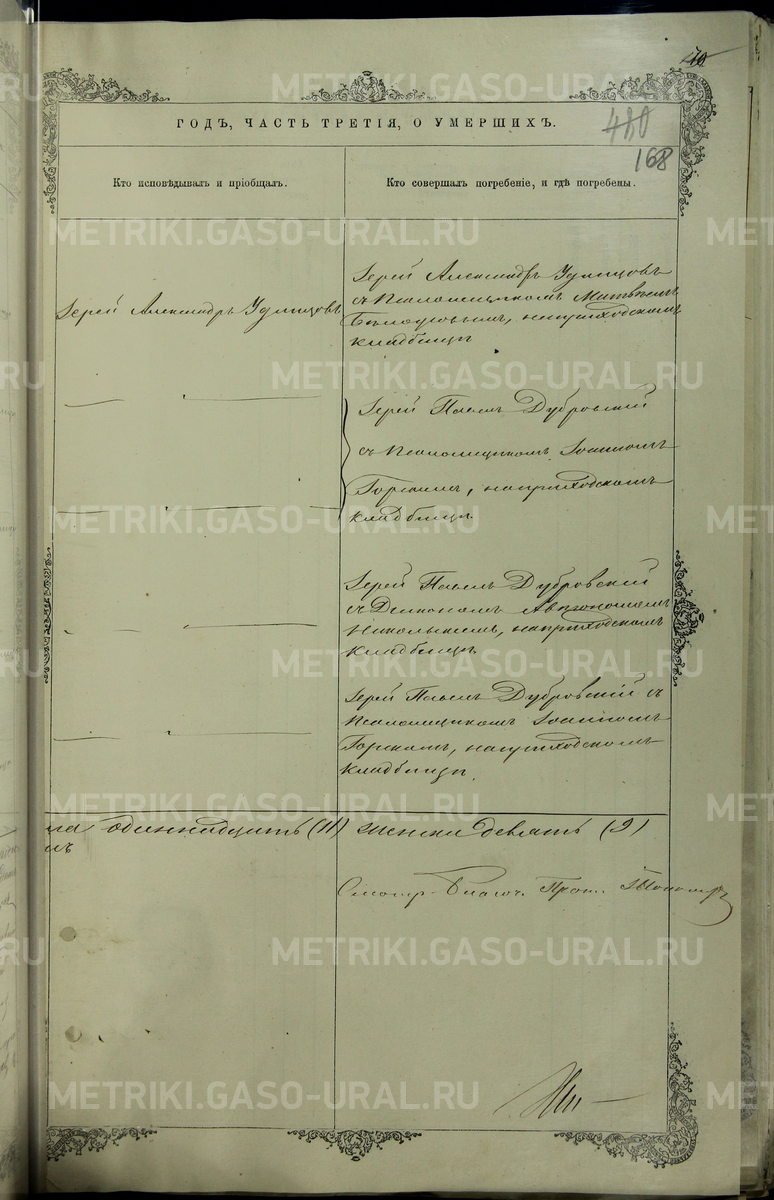 480
168
ГОДЪ, ЧАСТЬ ТРЕТІЯ, О УМЕРШИХЪ.
Кто исповѣдывалъ и пріобщалъ.
Кто совершалъ погребеніе, и гдѣ погребены.
METRIKI.GASO-URAL.RU
Іерей Александръ Удинцовъ
Іерей Александръ Удинцовъ
съ Псаломщикомъ Матвѣемъ
на приходскомъ
кладбищѣ
Іерей Павелъ Дубровскій
съ Псаломщикомъ Іоанномъ
Горскимъ, на приходскомъ
кладбищѣ.
Іерей Павелъ Дубровскій
съ Діакономъ
на приходскомъ
кладбищѣ.
Іерей Павелъ Дубровскій съ
Псаломщикомъ Іоанномъ
Горскимъ, на приходскомъ
кладбищѣ.
одиннадцать (11) женска девять (9)
Смотр. Благоч. Прот.